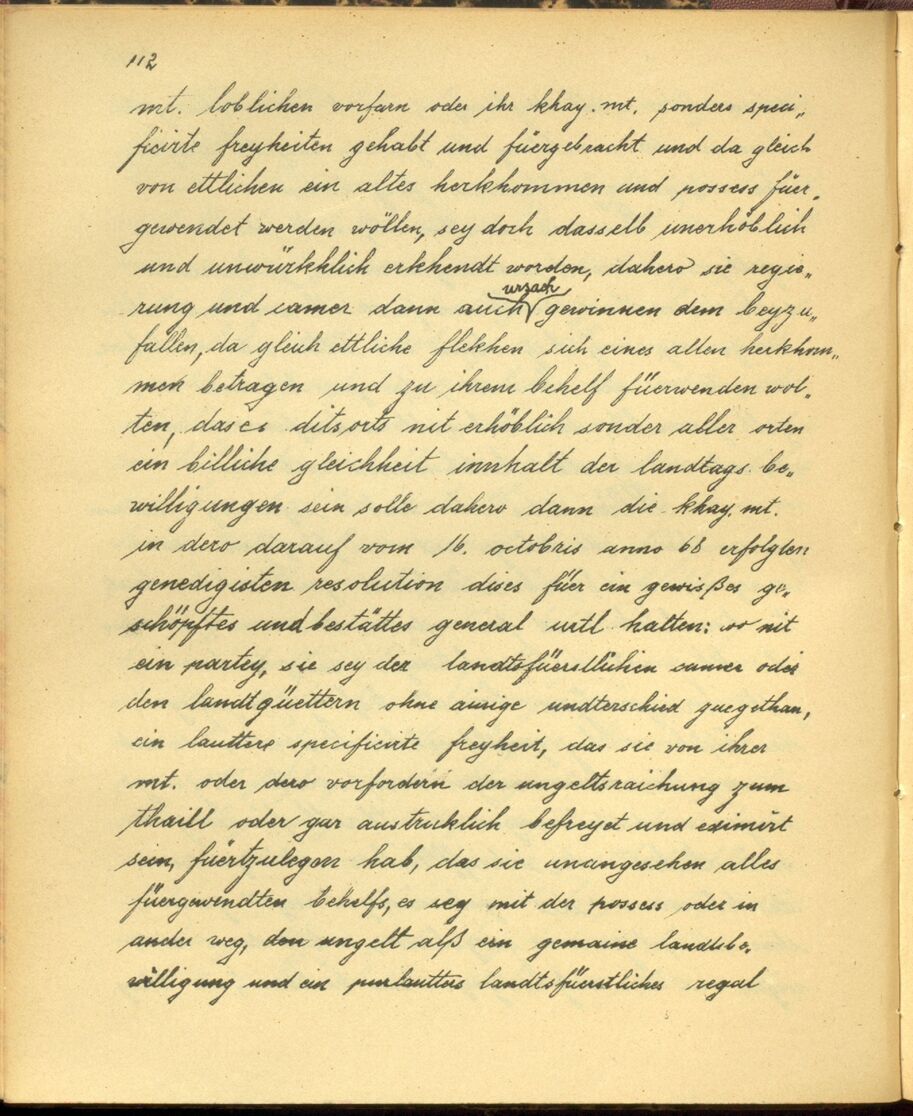 112
mt. loblichen vorfarn oder ihr khay. mt. sonders speci„
ficirte freyheiten gehabt und füergebracht und da gleich
von ettlichen ein altes herkhommen und possess füer„
gewendet werden wöllen, sey doch dasselb unerhöblich
und unwürkhlich erkhendt worden, dahero sie regie„
urzach
rung und camer dann auch gewinnen dem beyzu„
fallen, da gleich ettliche flekhen sich eines alten herkhom„
men betragen und zu ihrem behelf füerwenden wol„
ten, das es ditsorts nit erhöblich sonder aller orten
ein billiche gleichheit innhalt der landtags be„
willigungen sein solle dahero dann die khay. mt.
in dero darauf vom 16. octobris anno 68 erfolgten
genedigisten resolution dises füer ein gewißes ge„
schöpftes und bestättes general urtl halten: so nit
ein partey, sie sey der landtsfüerstlichen camer oder
den landtgüettern ohne ainige undterschied zuegethan,
ein lauttere specificirte freyheit, das sie von ihrer
mt. oder dero vorfordern der ungeltsraichung zum
thaill oder gar austruklich befreyet und eximirt
sein, füertzulegen hab, das sie unangesehen alles
füergewendten behelfs, es sey mit der possess oder in
ander weg, den ungelt alß ein gemaine landtsbe„
willigung und ein purlautters landtsfüerstliches regal